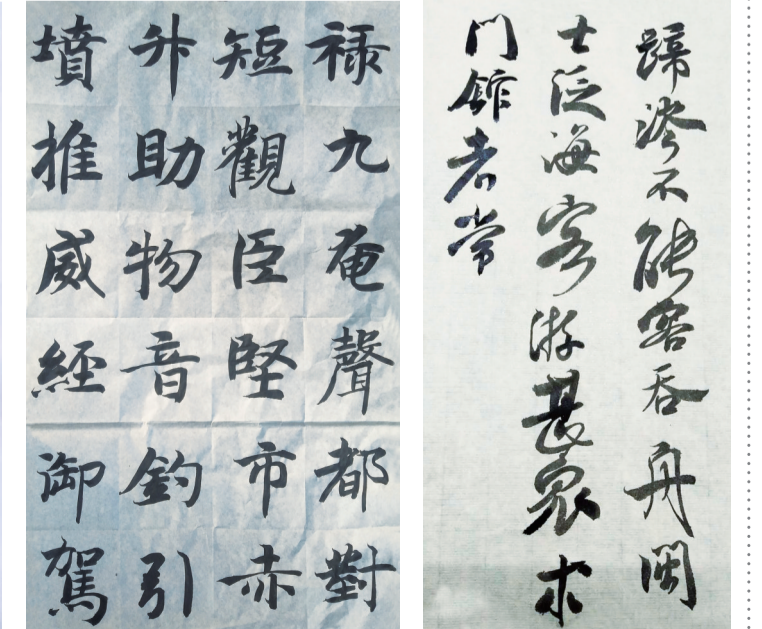 禄九奄聲都對
短觀臣堅市赤
升助物音釣引
墳推威經御駕
蹄涔不能容吞舟閩
士泛海客游甚衆求
門館者常